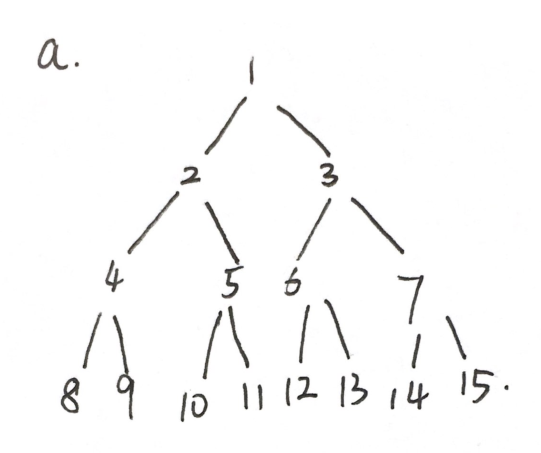 a.
1
2 3
4 5 6 7
8 9 10 11 12 13 14 15.